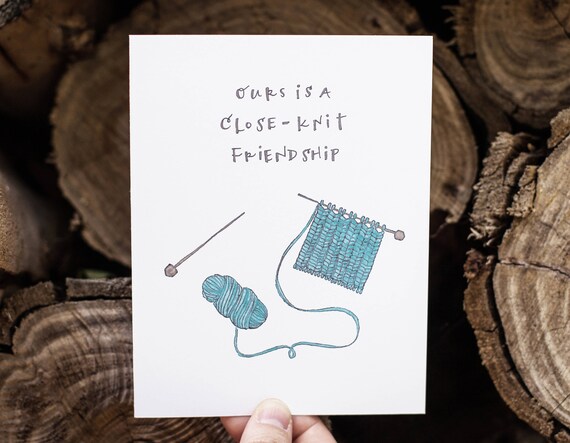 OURS IS A
CLOSE-KNIT
FRIENDSHIP